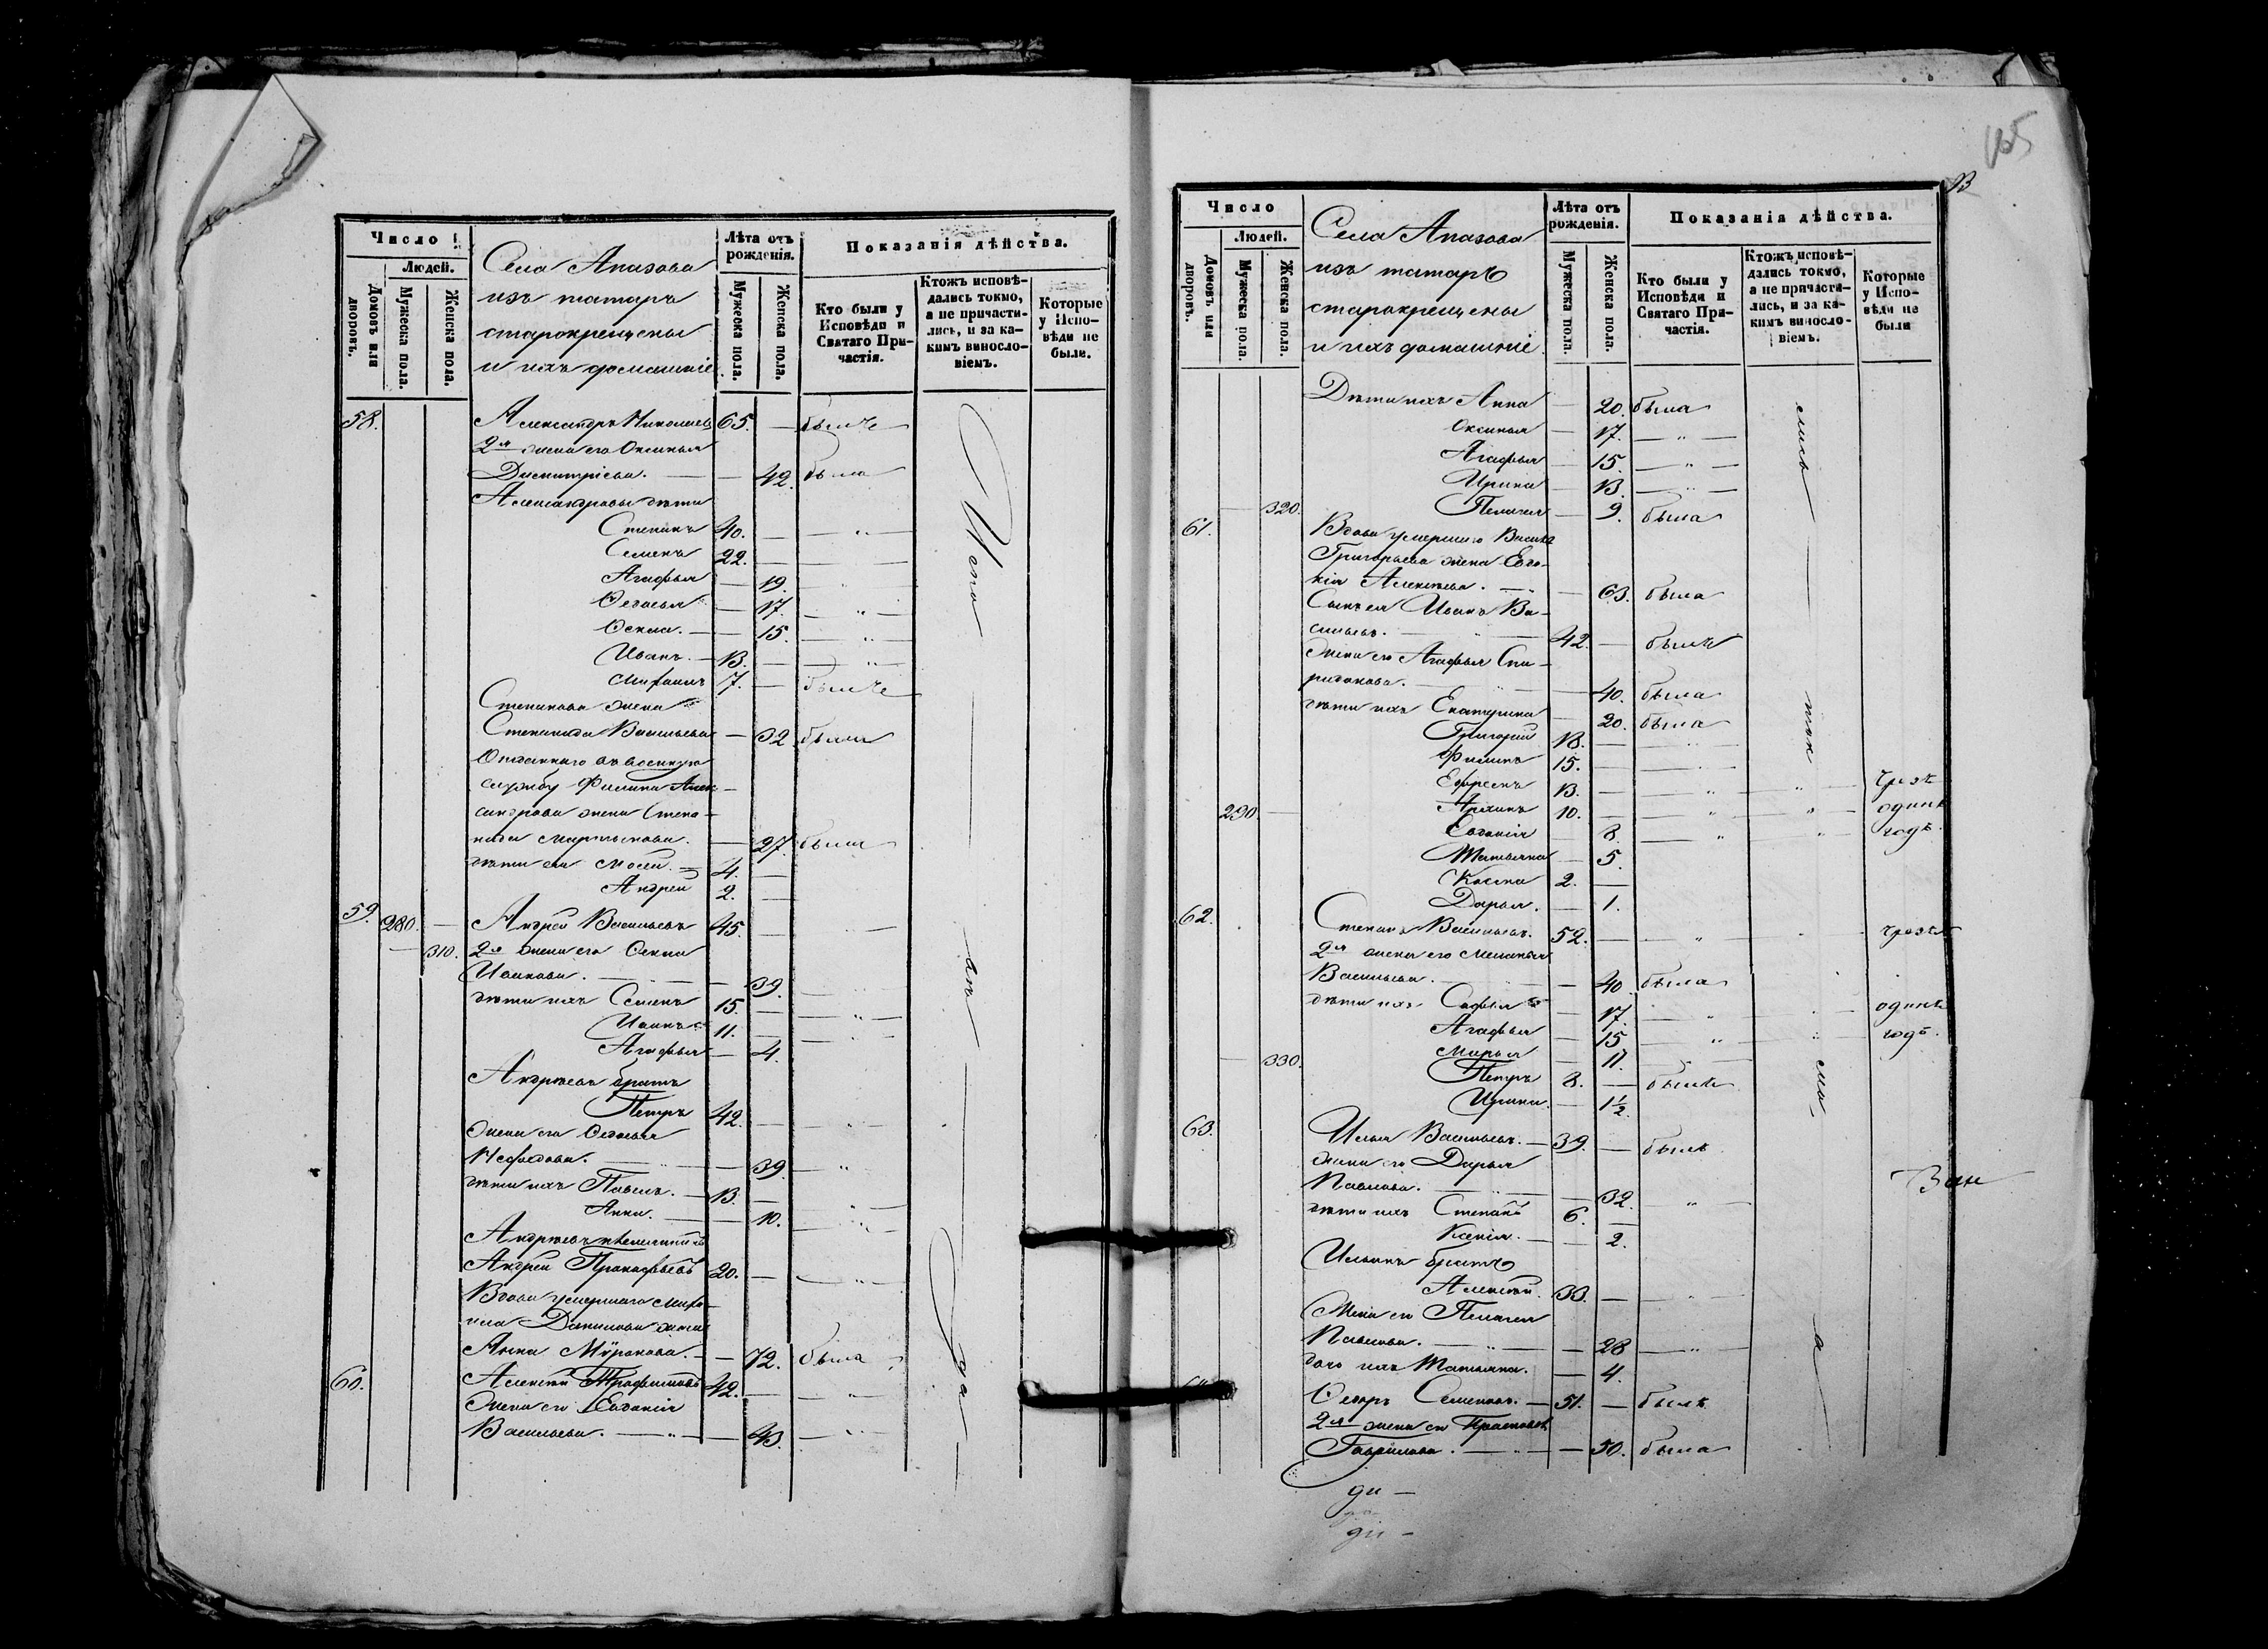 Число
Людей.
Домовъ или дворовъ.
Мужеска пола.
Женска пола.
Села Апазова
изъ татаръ
старокрещены
и ихъ домашніе
Лѣта отъ рожденія.
Мужеска пола.
Женска пола.
Показанія дѣйства.
Кто были у Исповѣди и Святаго Причастія.
Ктожъ исповѣдались токмо, а не причастились, и за какимъ винословіемъ.
Которые у Исповѣди не были.
58. Александръ Николаевъ 65. — былъ
2я жена его Оксинья
Димитріева. — 42. была
Александровы дѣти
Степанъ 40. — „ —
Семенъ 22. —
Агафья — 19. „
Ѳедосья — 17. — „ —
Ѳекла. — 15. — „ —
Иванъ. — 13. — „
Михаилъ 7. — былъ
Степанова жена
Степанида Васильева — 32 была
Отданнаго въ военную
службу Филипа Алек-
сандрова жена Степа-
нида Мартынова. — 27. была
дѣти ея Мосей. — 4. —
Андрей 2. —
59. 280. — Андрей Васильевъ 45. — „ —
— 310. 2я жена его Ѳекла
Иванова. — 39. „
дѣти ихъ Семенъ 15. — „ —
Иванъ 11. — „
Агафья — 4.
Андреевъ братъ
Петръ 42. — „
Жена его Ѳедосья
Нефедова. — 39. — „
дѣти ихъ Павелъ. — 13. — „
Анна. — 10. „
Андреевъ племянникъ
Андрей Прокофьевъ 20. — „
Вдова умершаго Миха-
ила Данилова жена
Анна Миронова. — 72. была
60. Алексѣй Трофимовъ 42. — „
Жена его Евдокія
Васильева. — „ — 43. — „
165
Число
Людей.
Домовъ или дворовъ.
Мужеска пола.
Женска пола.
Села Апазова
изъ татаръ
старокрещены
и ихъ домашніе.
Лѣта отъ рожденія.
Мужеска пола.
Женска пола.
Показанія дѣйства.
Кто были у Исповѣди и Святаго Причастія.
Ктожъ исповѣдались токмо, а не причастились, и за какимъ винословіемъ.
Которые у Исповѣди не были
Дѣти ихъ Анна — 20. была
Оксинья — 17. — „ —
Агафья — 15. — „ —
Ирина — 13. — „ —
— 320. Пелагея — 9. была
61. Вдова умершаго Василья
Григорьева жена Евдо-
кія Алексѣева. — 63. была
Сынъ ея Иванъ Ва-
сильевъ. — 42. — былъ
Жена его Агафья Спи-
ридонова. — 40. была
дѣти ихъ Екатерина — 20. была
Григорій 18. — „
Филипъ 15. — „
Ефремъ 13. — „ „ чрезъ
290. — Архипъ 10. — „ „ одинъ
Евдокія — 8. — „ „ годъ.
Татьяна — 5.
Косма 2. —
Дарья. — 1.
62. Степанъ Васильевъ. 52. — „ чрезъ
2я жена его Меланья
Васильева. — 40. была
дѣти ихъ Софья — 17. „ одинъ
Агафья — 15 „ годъ.
— 330. Марья — 11.
Петръ 8. — былъ
Ирина. — 1½
63. Илья Васильевъ. — 39. — былъ
жена его Дарья
Павлова. — 32. — „ —
дѣти ихъ Степанъ 6. —
Ксенія. — 2.
Ильинъ братъ
Алексѣй. 33. — „
Жена его Пелагея
Павлова. — 28 — „ —
дочь ихъ Татьяна. — 4.
Ѳедоръ Семеновъ. — 51. — былъ
2я жена его Прасковья
Гаврилова. — „ — 50. была